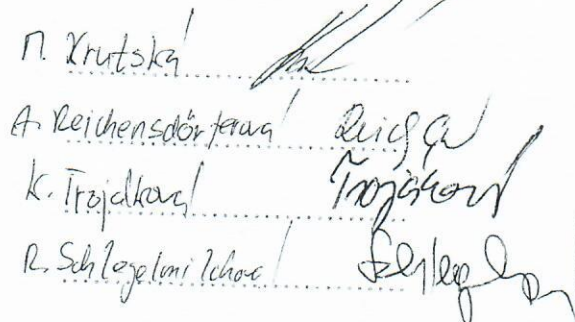 M. Krutská
A. Reichensdörferová
K. Trojáková Trojáková
R. Schlegelmilchová